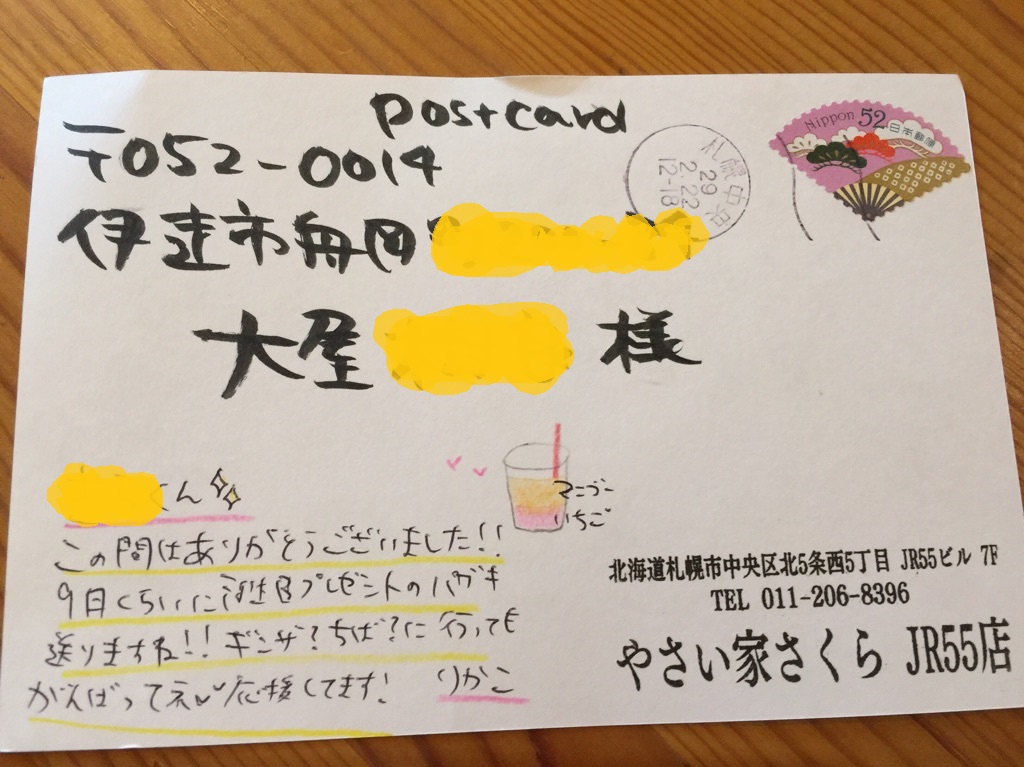 postcard
〒052-0014
伊達市舟岡
大屋 様
Nippon 52
日本郵便
札幌中央
29
2.22
12-18
くん
マンゴー
いちご
この間はありがとうございました!!
9日くらいに誕生日プレゼントのハガキ
送りますね!! ギンザ?ちば?に行っても
がんばってネ 応援してます! りかこ
北海道札幌市中央区北5条西5丁目 JR55ビル 7F
TEL 011-206-8396
やさい家さくら JR55店